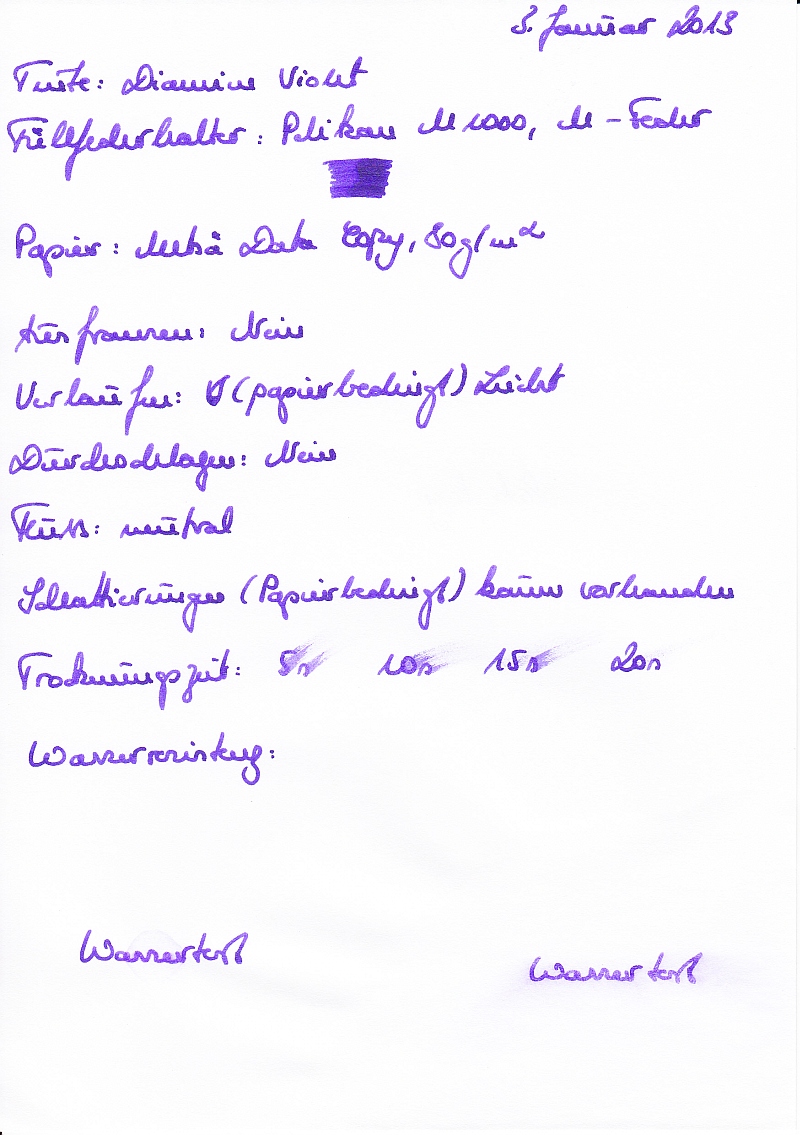 3. Januar 2013
Tinte: Diamine Violet
Füllfederhalter: Pelikan M 1000, M-Feder
Papier: Metsä Data Copy, 80g/m²
Ausfransen: Nein
Verlaufen: (papierbedingt) Leicht
Durchschlagen: Nein
Fluss: neutral
Schattierungen (Papierbedingt) kaum vorhanden
Trocknungszeit: 5s 10s 15s 20s
Wasserresistenz:
Wassertest Wassertest